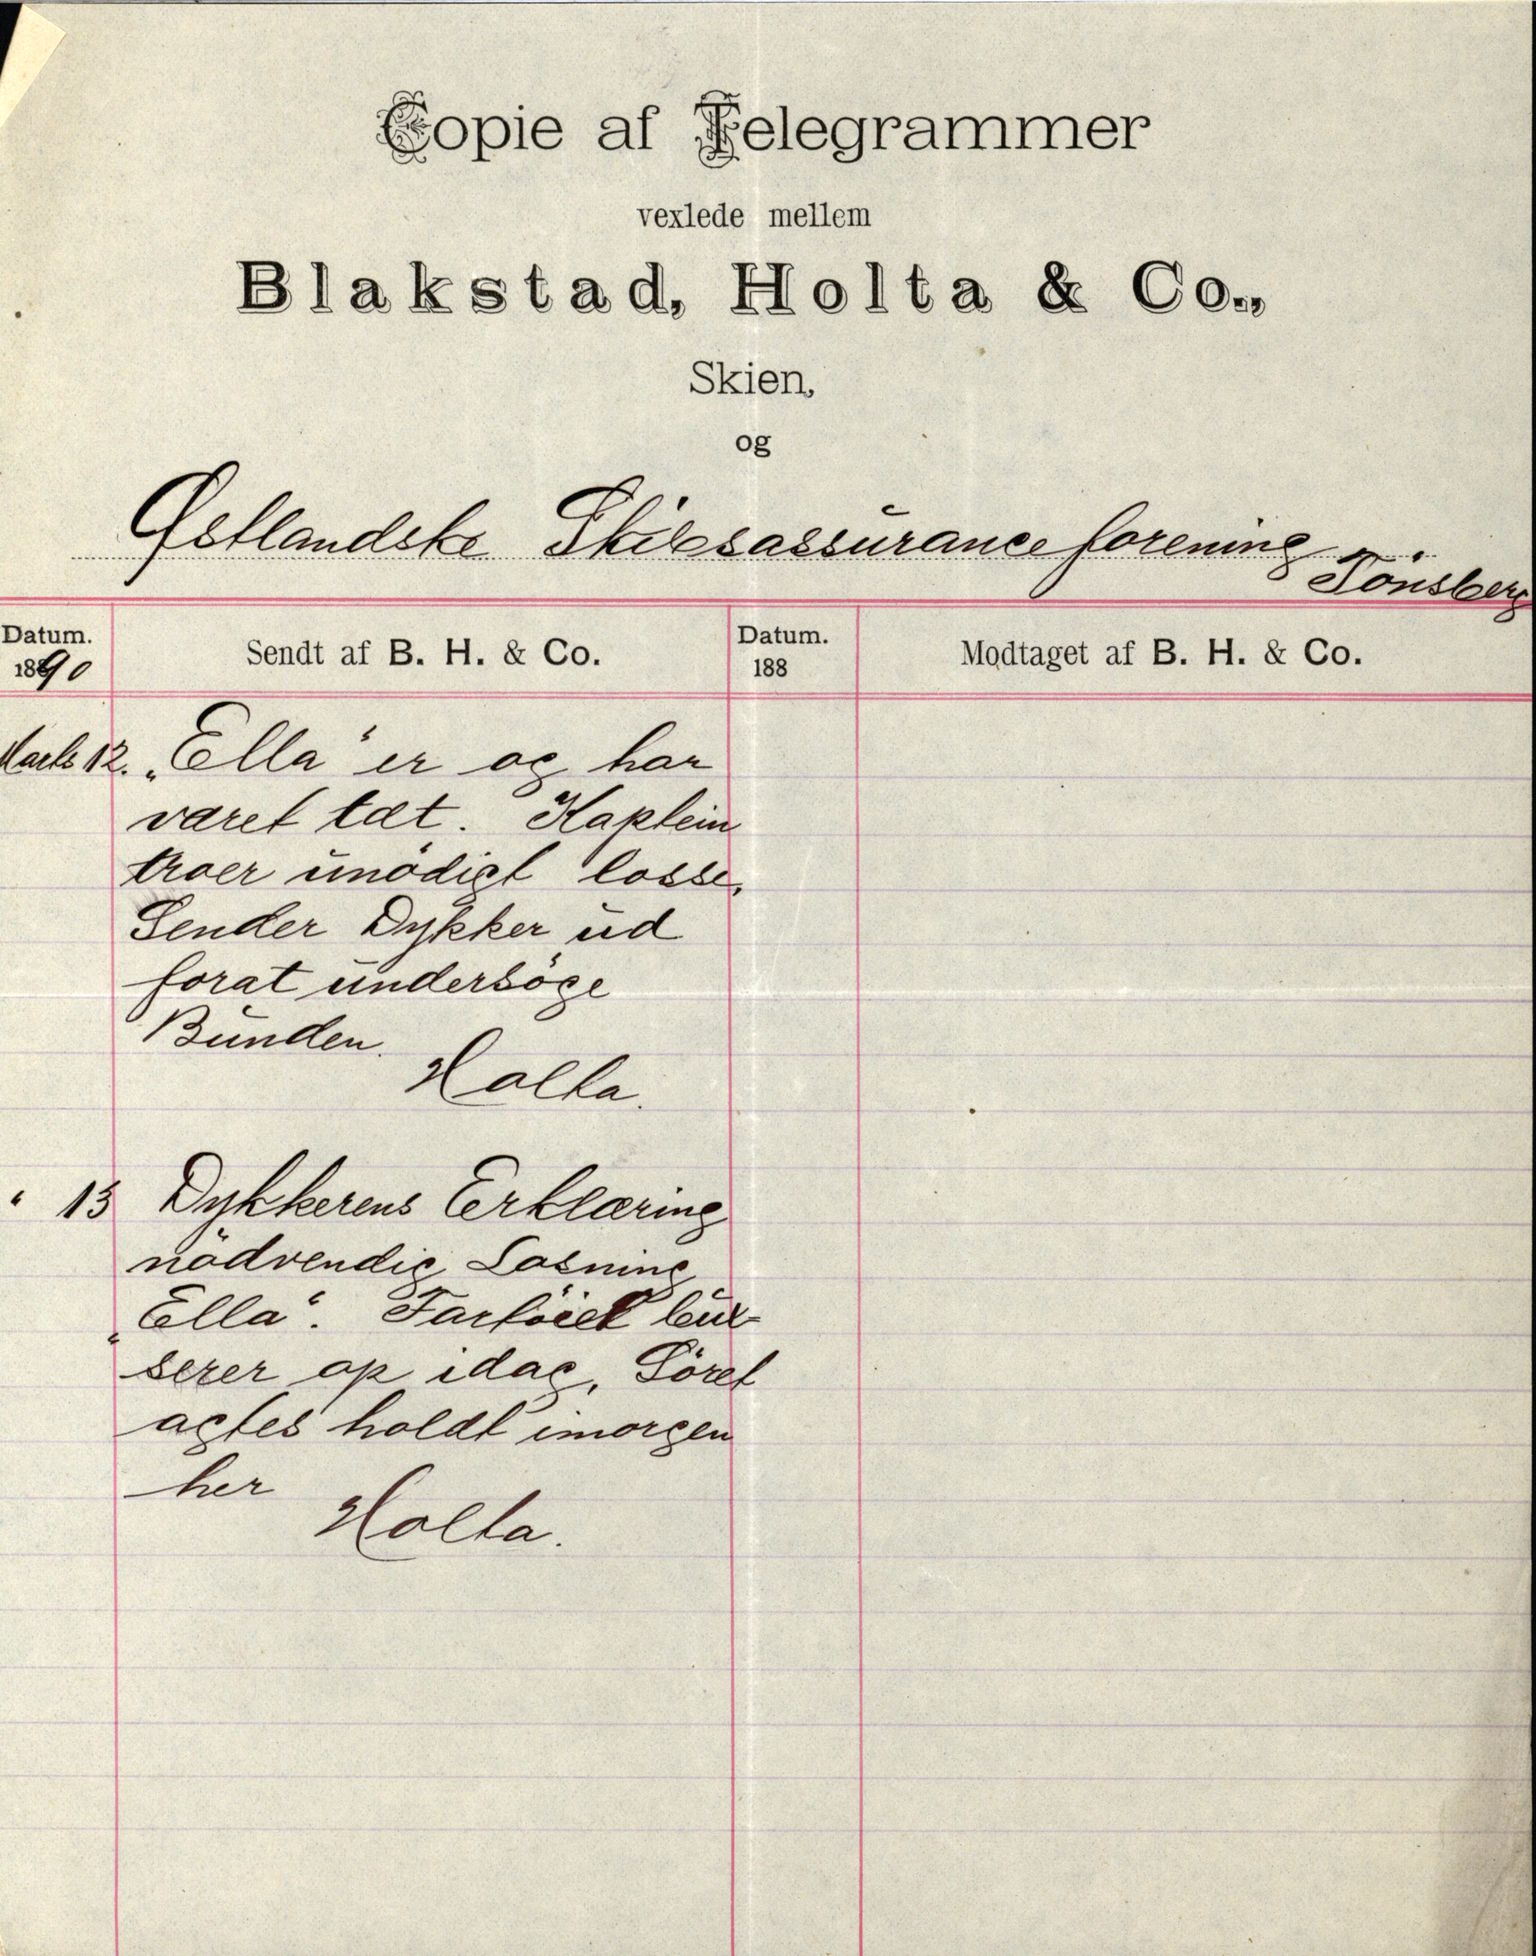 Copie af Telegrammer
vexlede mellem
Blakstad, Holta & Co.,
Skien,
og
Østlandske Skibsassuranceforening
Tönsberg
Datum.
1890
Sendt af B. H. & Co.
Datum.
188
Modtaget af B. H. & Co.
Marts 12. „Ella“ er og har
været tæt. Kaptein
troer unödigt losse.
Sender Dykker ud
forat undersöge
Bunden.
Holta.
" 13 Dykkerens Erklæring
nödvendig Losning
„Ella“. Fartöiet bug-
seres op idag, Söret
agtes holdt imorgen
her
Holta.